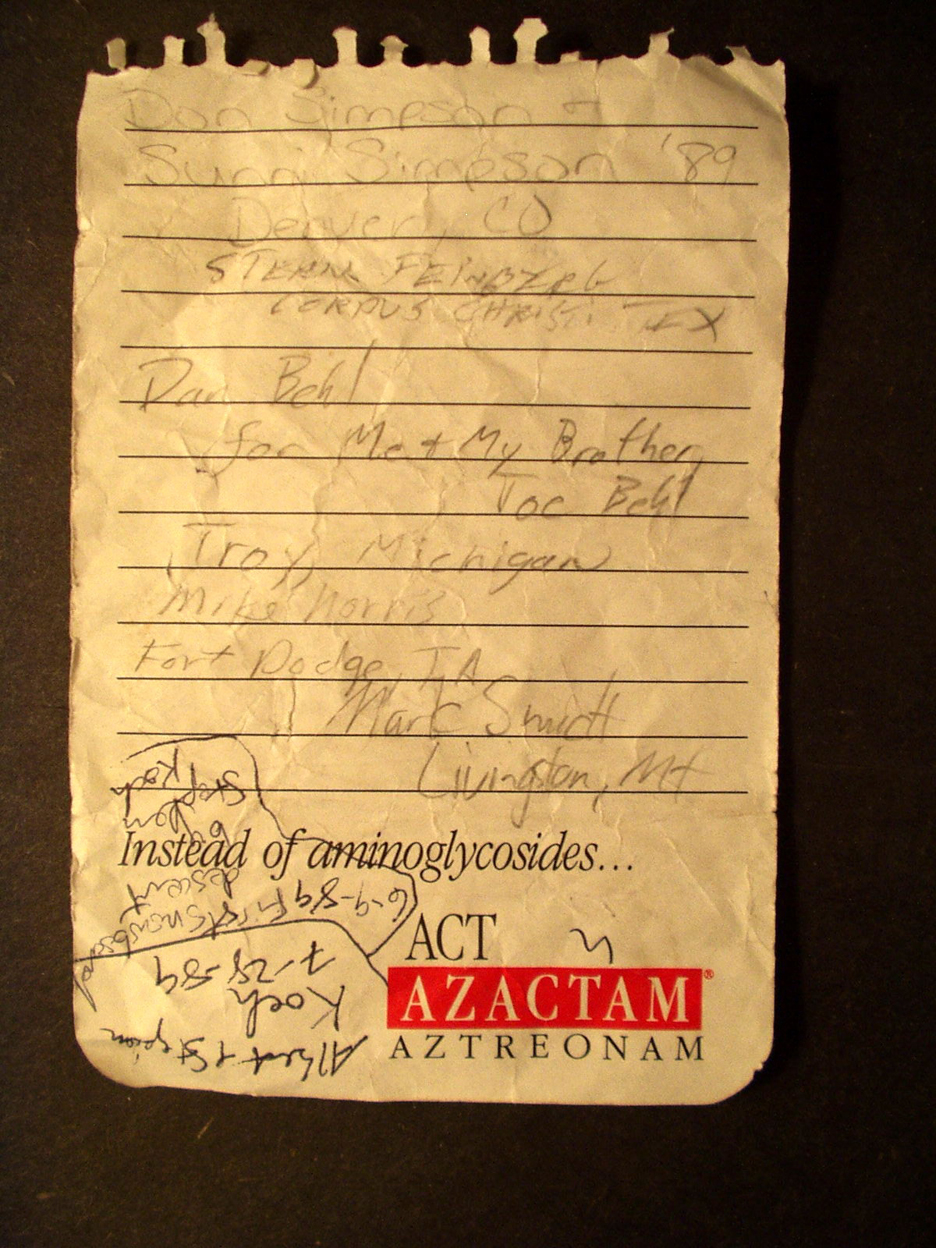 Don Simpson +
Sunni Simpson '89
Denver, CO
STERN FEINBERG
CORPUS CHRISTI TEX
Dan Behl
for Me + My Brother,
Joe Behl
Troy, Michigan
Mike Norris
Fort Dodge, IA
Mark Smith
Livingston, Mt
Instead of aminoglycosides...
ACT
AZACTAM®
AZTREONAM
Albert & Stephen
Koch
7-28-89
6-9-89 First Snowboard
descent
Stephen
Koch